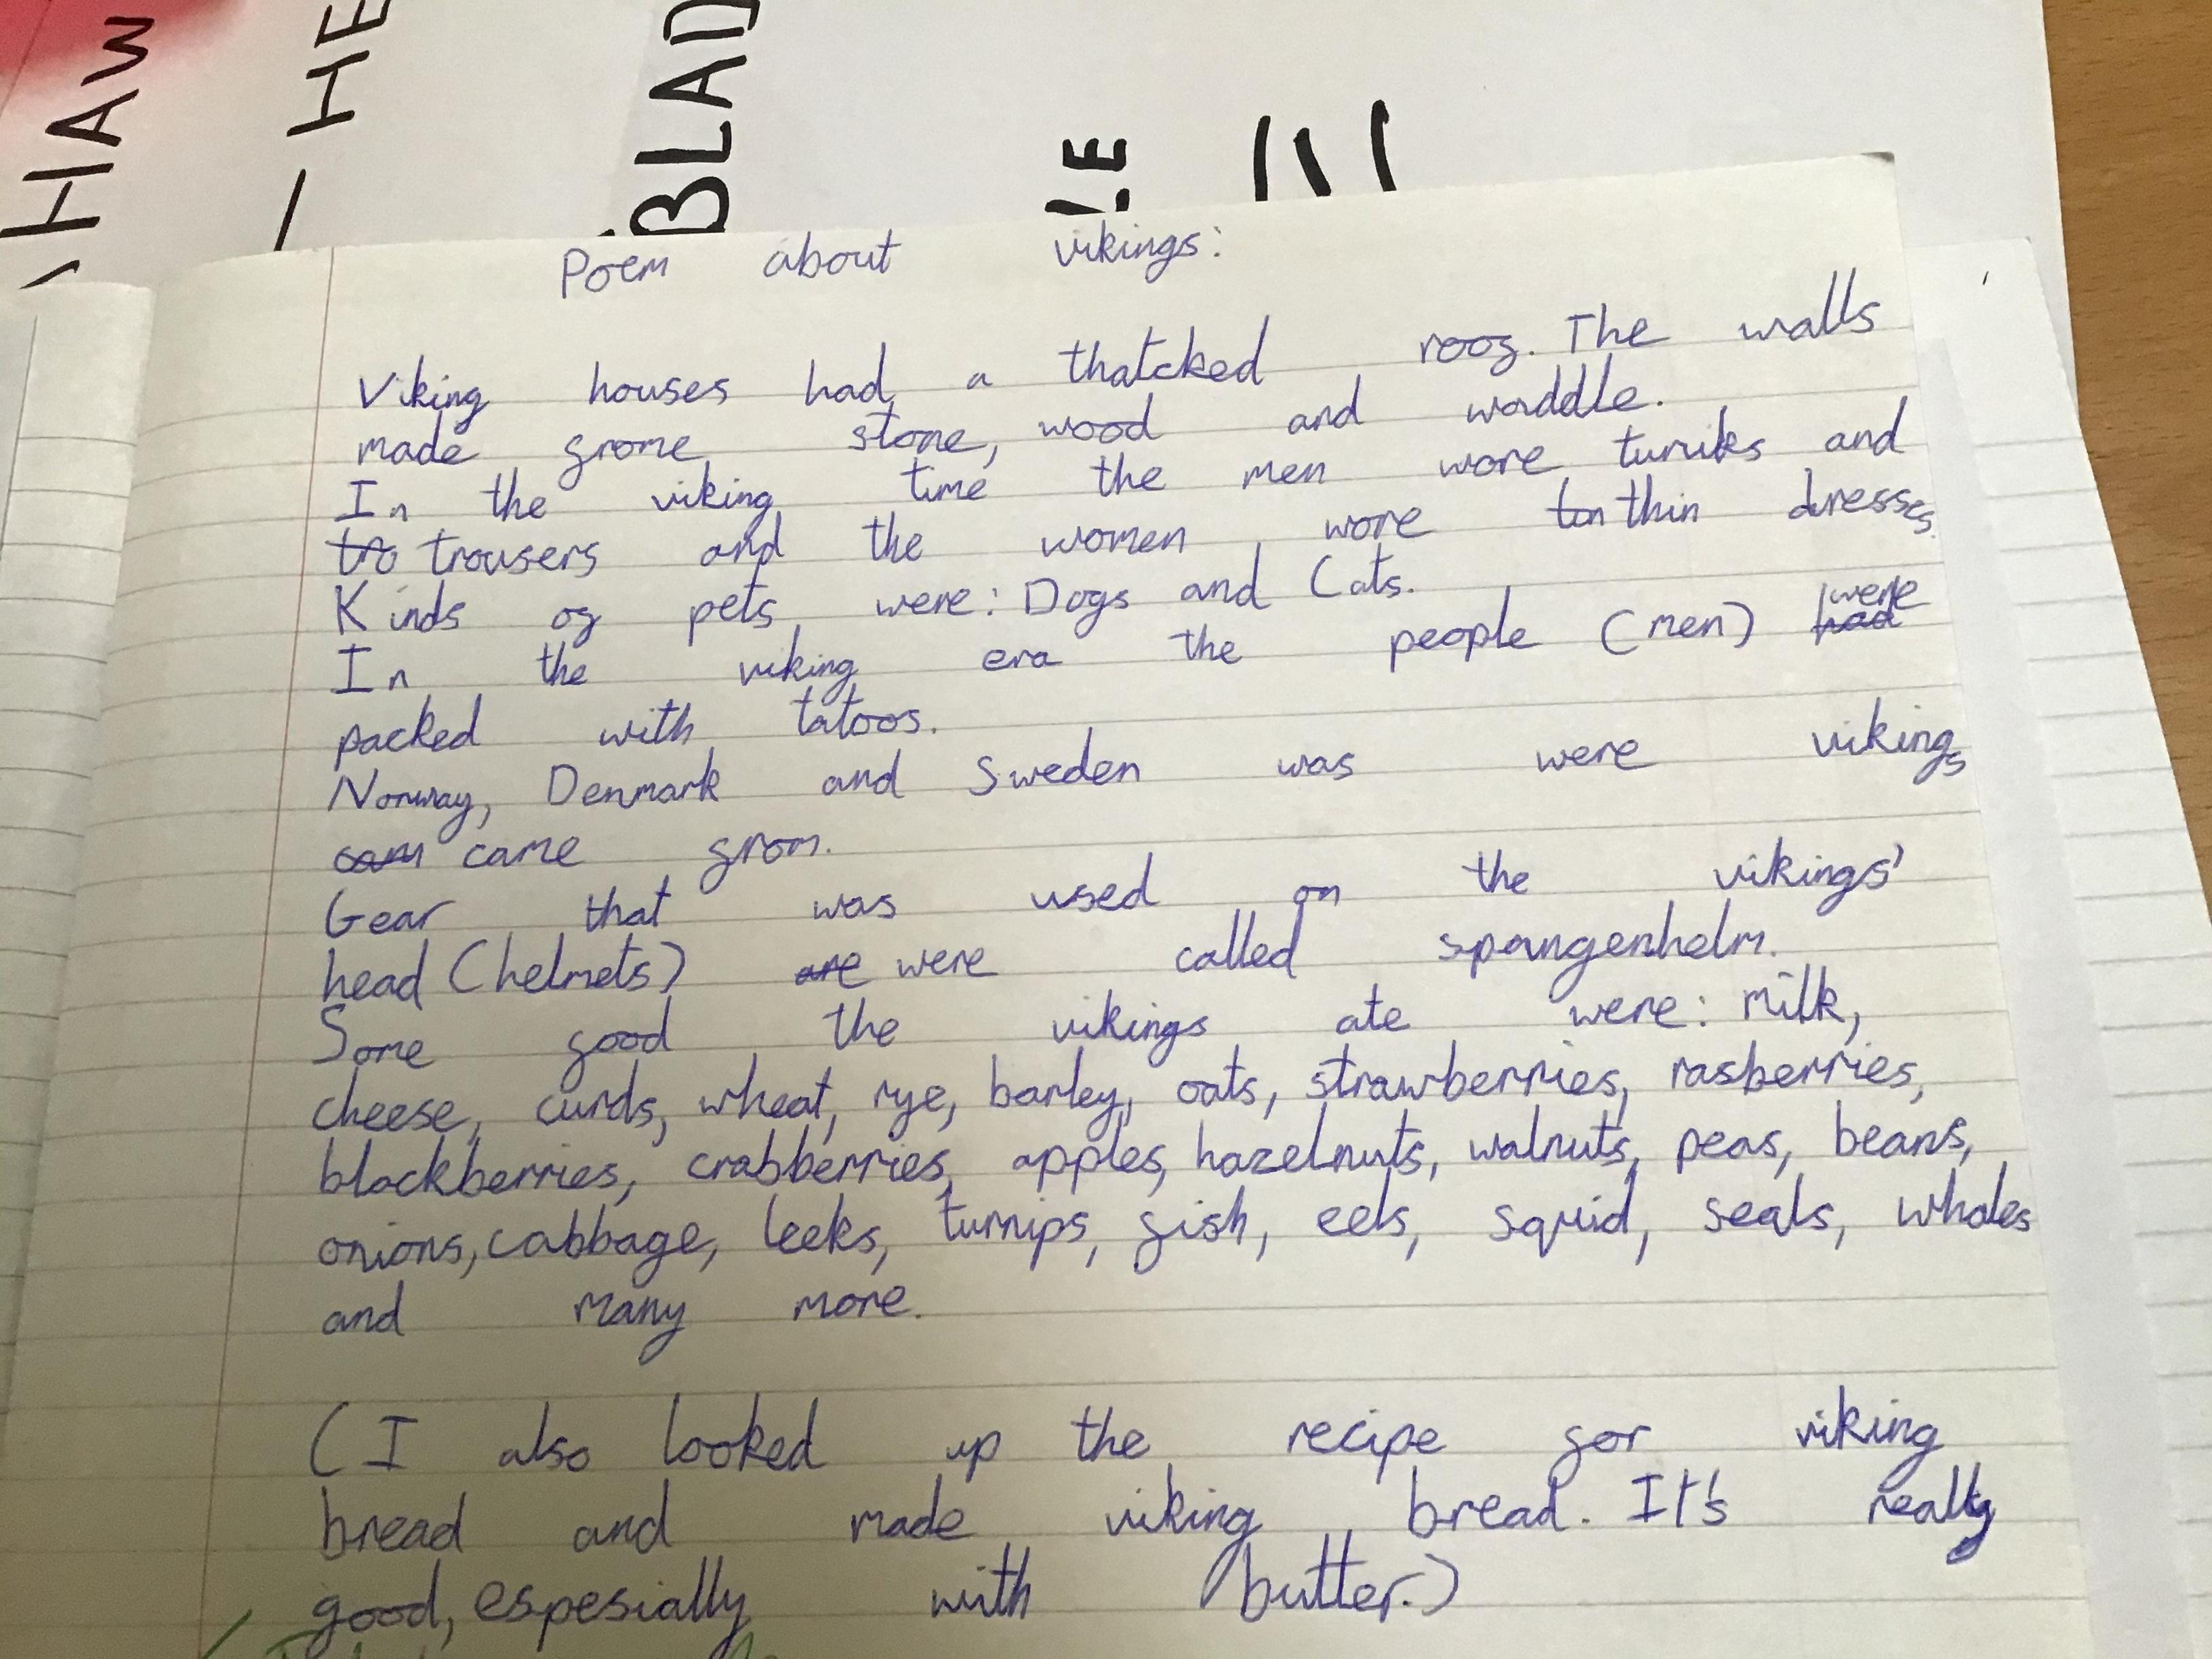 HAW
— HE
BLAD
Poem about vikings:
Viking houses had a thatcked roof. The walls
made frome stone, wood and waddle.
In the viking time the men wore tuniks and
tro trousers and the women wore ton thin dresses.
Kinds of pets were: Dogs and Cats.
In the viking era the people (men) had were
packed with tatoos.
Norway, Denmark and Sweden was were vikings
cam came from.
Gear that was used on the vikings'
head (helmets) are were called spangenhelm.
Some food the vikings ate were: milk,
cheese, curds, wheat, rye, barley, oats, strawberries, rasberries,
blackberries, crabberries, apples, hazelnuts, walnuts, peas, beans,
onions, cabbage, leeks, turnips, fish, eels, squid, seals, whales
and many more.
(I also looked up the recipe for viking
bread and made viking bread. It's really
good, espesially with butter.)